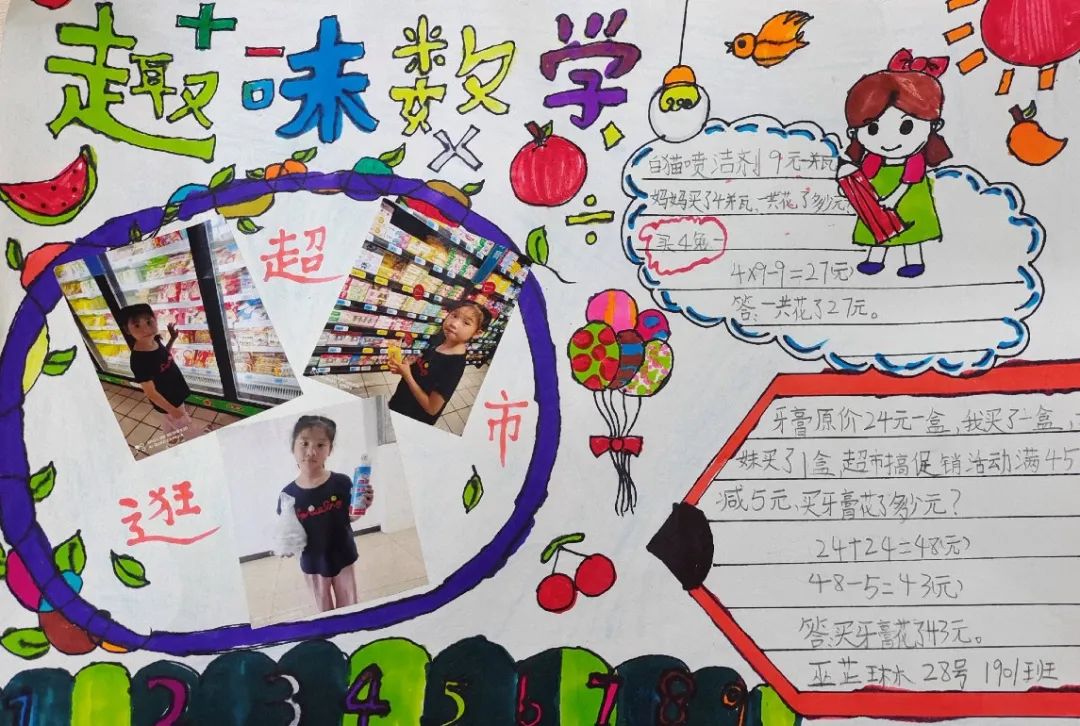 趣味数学
+ - × ÷
超
市
逛
白猫喷洁剂9元一瓶
妈妈买了4瓶、一共花了多少元
买4免一
4×9-9=27(元)
答:一共花了27元。
牙膏原价24元一盒,我买了一盒,
妹买了1盒 超市搞促销活动满45
减5元、买牙膏花了多少元?
24+24=48(元)
48-5=43(元)
答:买牙膏花了43元。
28号 1901班
1 2 3 4 5 6 7 8 9